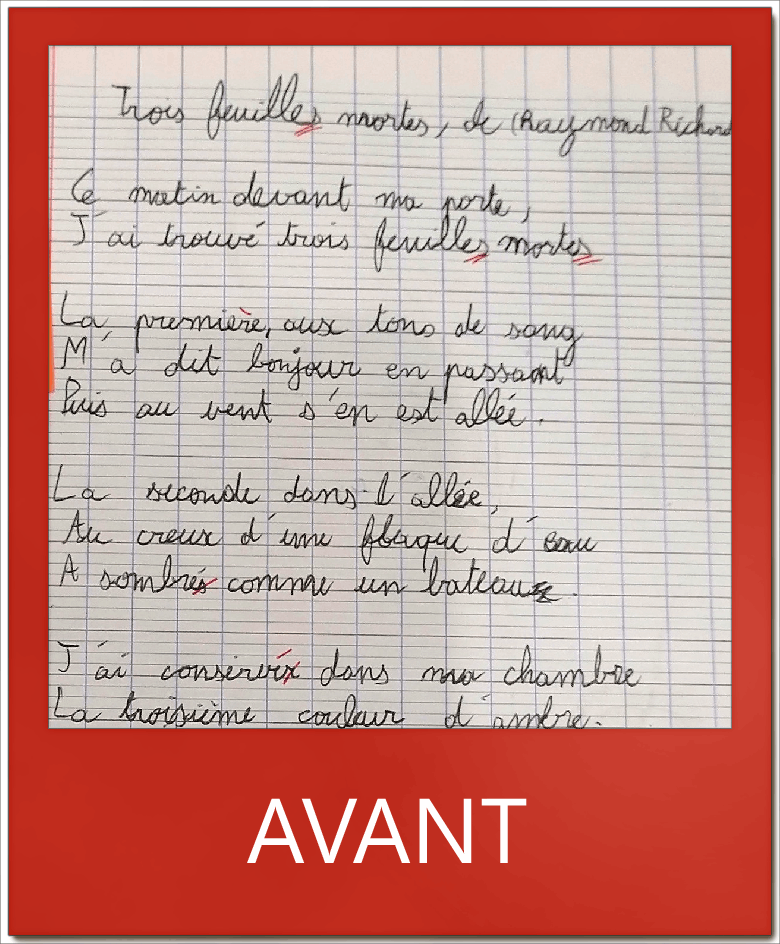 Trois feuilles mortes, de (Raymond Richard
Ce matin devant ma porte,
J'ai trouvé trois feuilles mortes
La première, aux tons de sang
M'a dit bonjour en passant
Puis au vent s'en est allée.
La seconde dans l'allée,
Au creux d'une flaque d'eau
A sombrés comme un bateau
J'ai conservéx dans ma chambre
La troisième couleur d'ambre.
AVANT